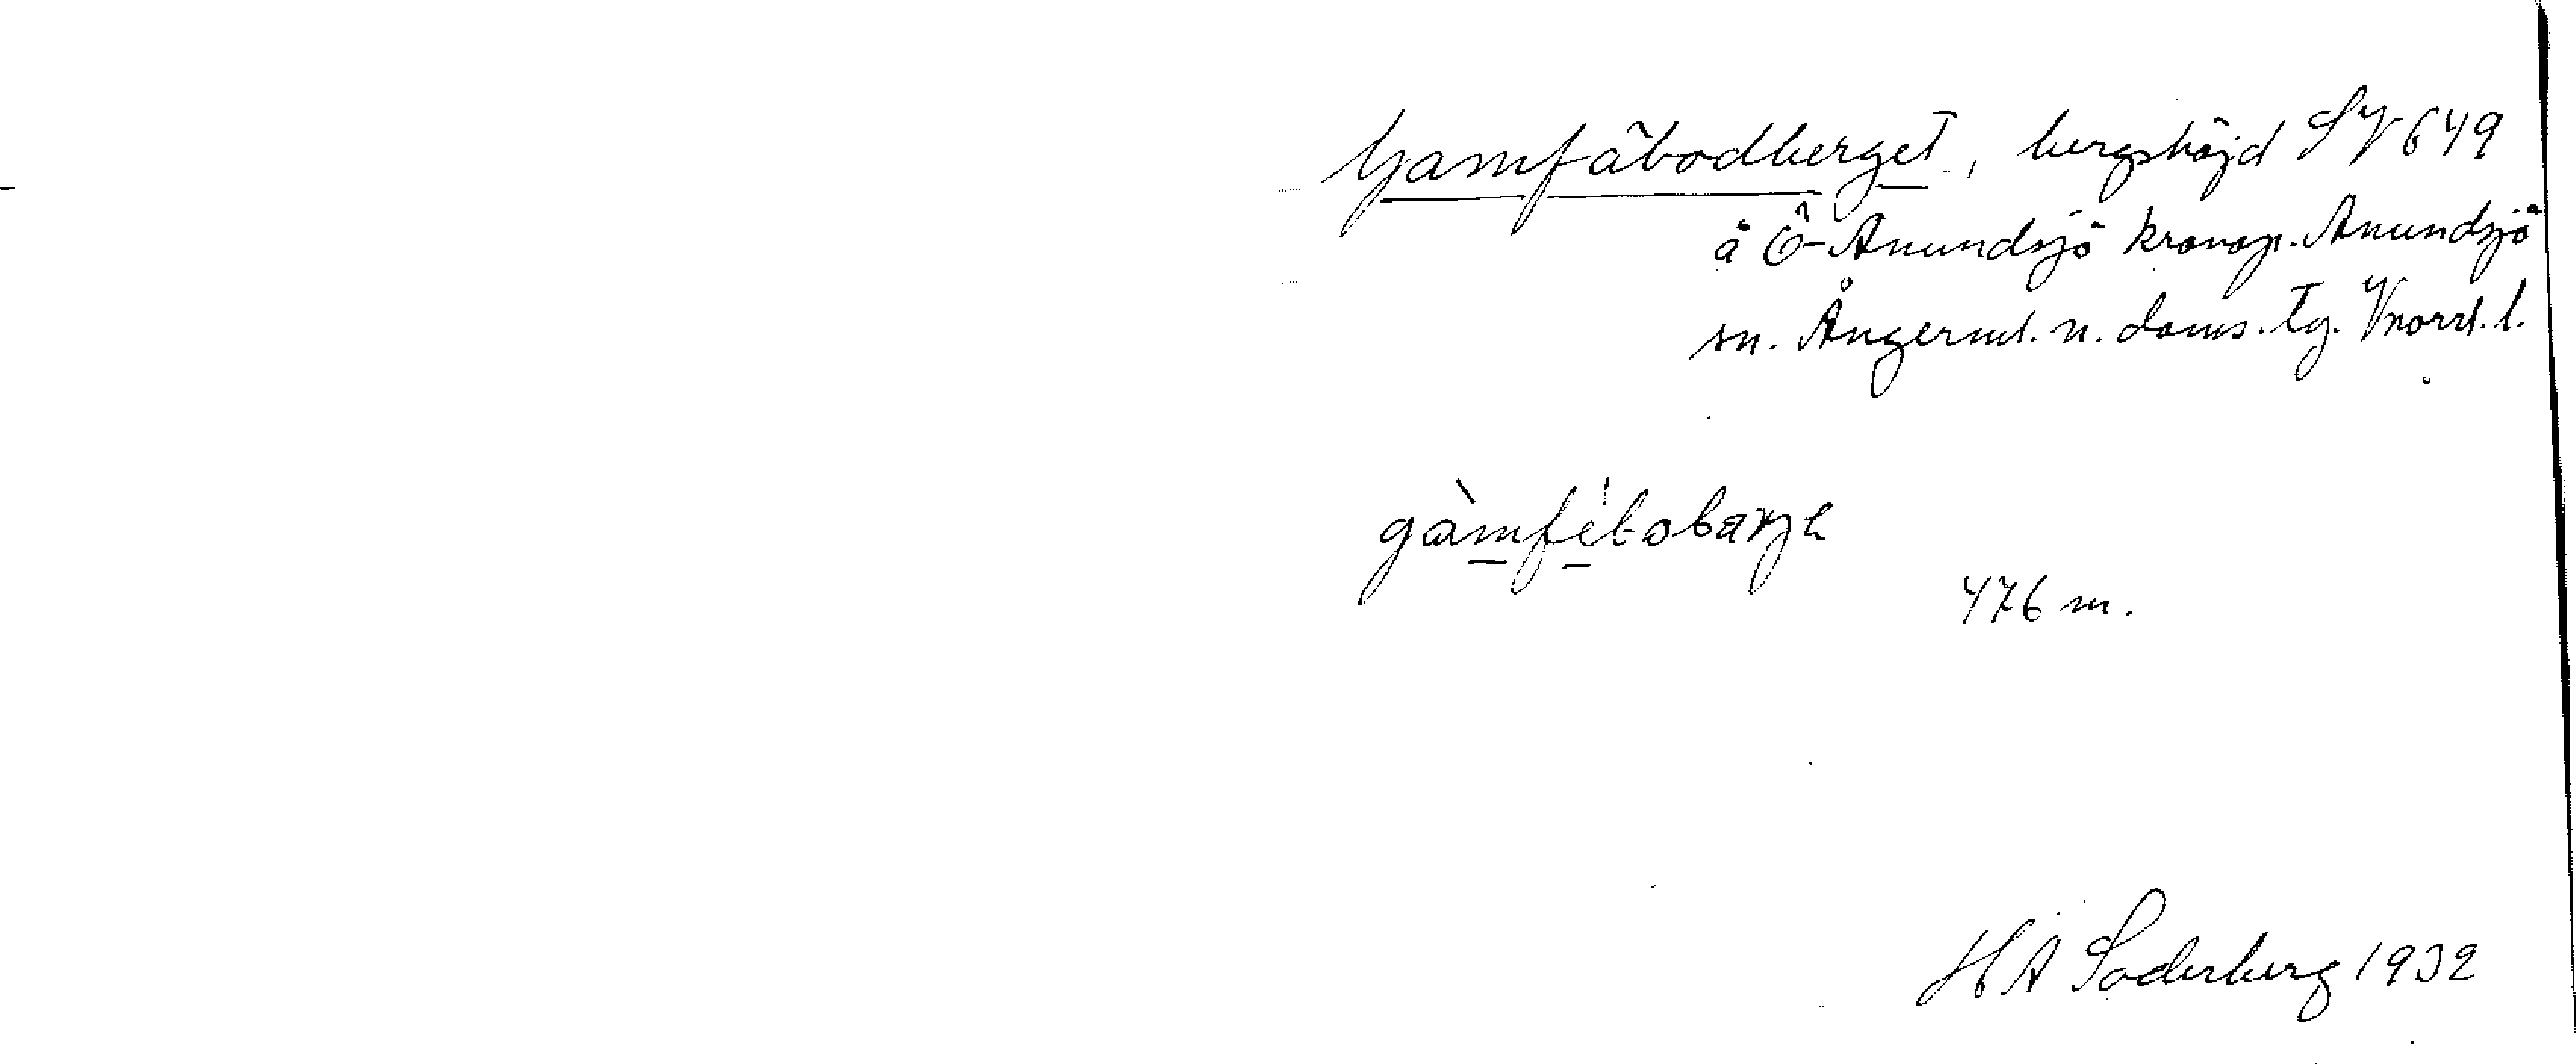 Gamfäbodberget, bergshöjd SV 649
å Ö-Anundsjö kronop. Anundsjö
sn. Ångerml. n. doms. tg. Vnorrl. l.
gàmfèbobærje
476 m.
H A Söderberg 1932